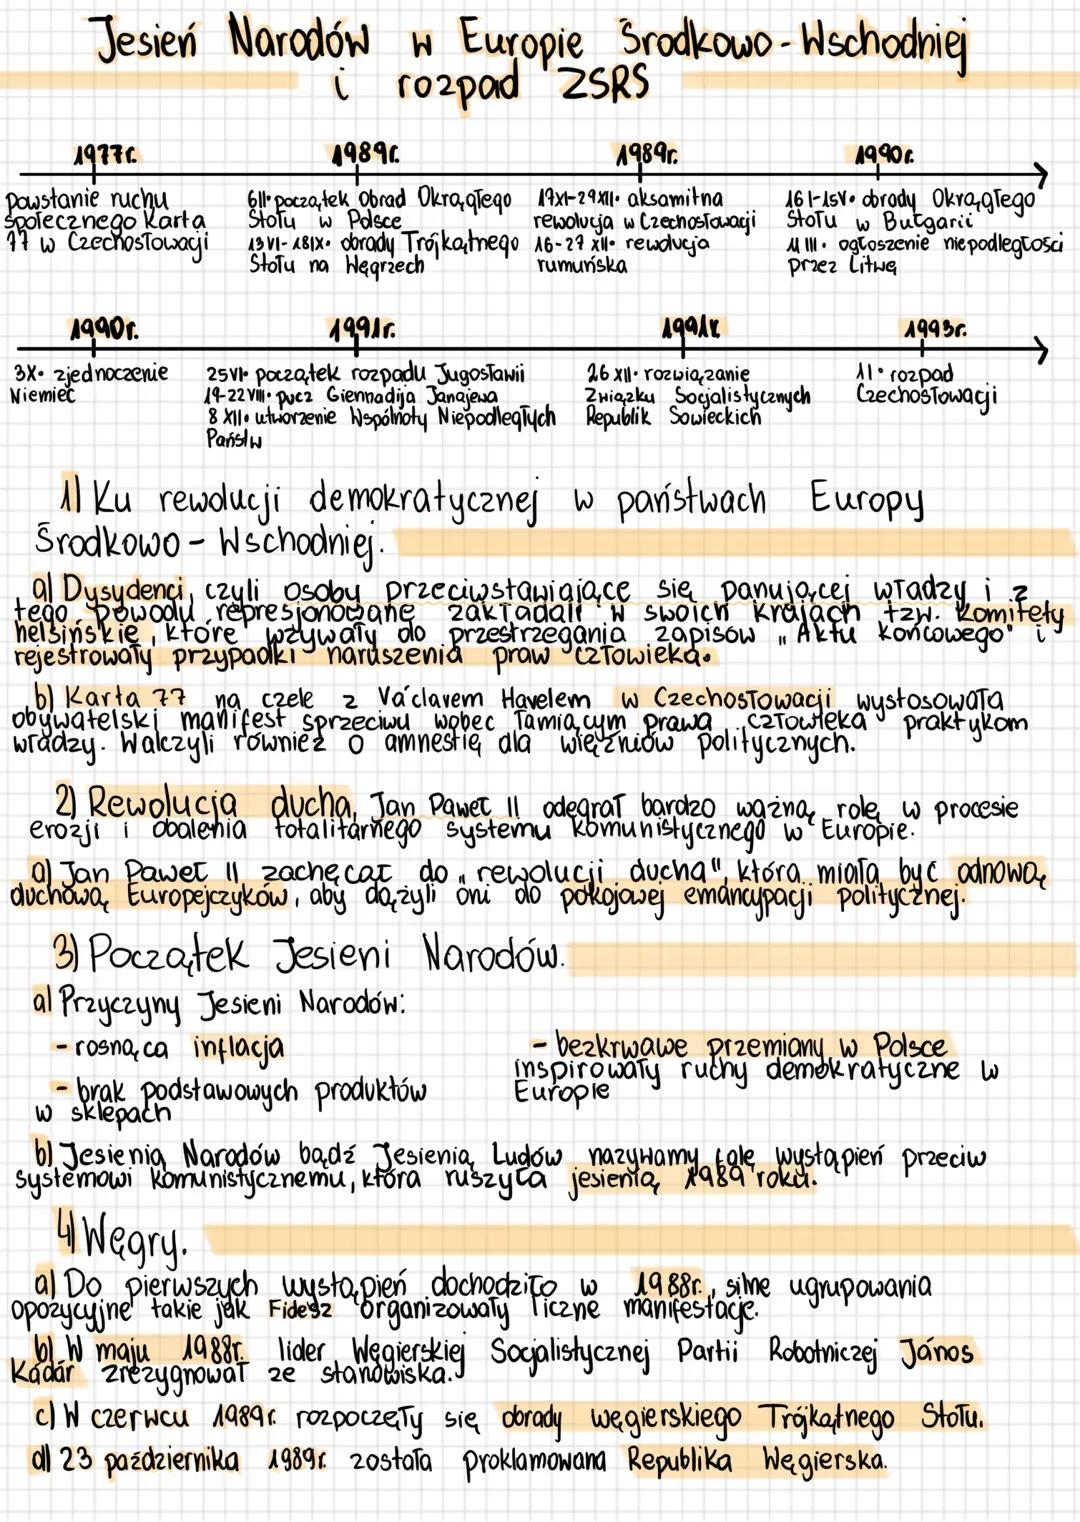 Jesień Narodów w Europie Środkowo-Wschodniej
i rozpad ZSRS
1977r.
1989r.
1989r.
1990r.
Powstanie ruchu
społecznego Karta
77 w Czechosłowacji
6II• początek obrad Okrągłego
Stołu w Polsce
13VI-18IX• obrady Trójkątnego
Stołu na Węgrzech
17XI-29XII• aksamitna
rewolucja w Czechosłowacji
16-27 XII• rewolucja
rumuńska
16 I-15V• obrady Okrągłego
Stołu w Bułgarii
11 III• ogłoszenie niepodległości
przez Litwę
1990r.
1991r.
1991r.
1993r.
3X• zjednoczenie
Niemiec
25VI• początek rozpadu Jugosławii
19-22VIII• pucz Giennadija Janajewa
8 XII• utworzenie Wspólnoty Niepodległych
Państw
26 XII• rozwiązanie
Związku Socjalistycznych
Republik Sowieckich
1I• rozpad
Czechosłowacji
1) Ku rewolucji demokratycznej w państwach Europy
Środkowo-Wschodniej.
a) Dysydenci, czyli osoby przeciwstawiające się panującej władzy i z
tego powodu represjonowane zakładali w swoich krajach tzw. komitety
helsińskie, które wzywały do przestrzegania zapisów „Aktu końcowego" i
rejestrowały przypadki naruszenia praw człowieka.
b) Karta 77 na czele z Václavem Havelem w Czechosłowacji wystosowała
obywatelski manifest sprzeciwu wobec łamiącym prawa człowieka praktykom
władzy. Walczyli również o amnestię dla więźniów politycznych.
2) Rewolucja ducha, Jan Paweł II odegrał bardzo ważną rolę w procesie
erozji i obalenia totalitarnego systemu komunistycznego w Europie.
a) Jan Paweł II zachęcał do „rewolucji ducha", która miała być odnową
duchową Europejczyków, aby dążyli oni do pokojowej emancypacji politycznej.
3) Początek Jesieni Narodów.
a) Przyczyny Jesieni Narodów:
- rosnąca inflacja
- brak podstawowych produktów
w sklepach
- bezkrwawe przemiany w Polsce
inspirowały ruchy demokratyczne w
Europie
b) Jesienią Narodów bądź Jesienią Ludów nazywamy falę wystąpień przeciw
systemowi komunistycznemu, która ruszyła jesienią 1989 roku.
4) Węgry.
a) Do pierwszych wystąpień dochodziło w 1988r., silne ugrupowania
opozycyjne takie jak Fidesz organizowały liczne manifestacje.
b) W maju 1988r. lider Węgierskiej Socjalistycznej Partii Robotniczej János
Kádár zrezygnował ze stanowiska.
c) W czerwcu 1989r. rozpoczęły się obrady węgierskiego Trójkątnego Stołu.
d) 23 października 1989r. została proklamowana Republika Węgierska.